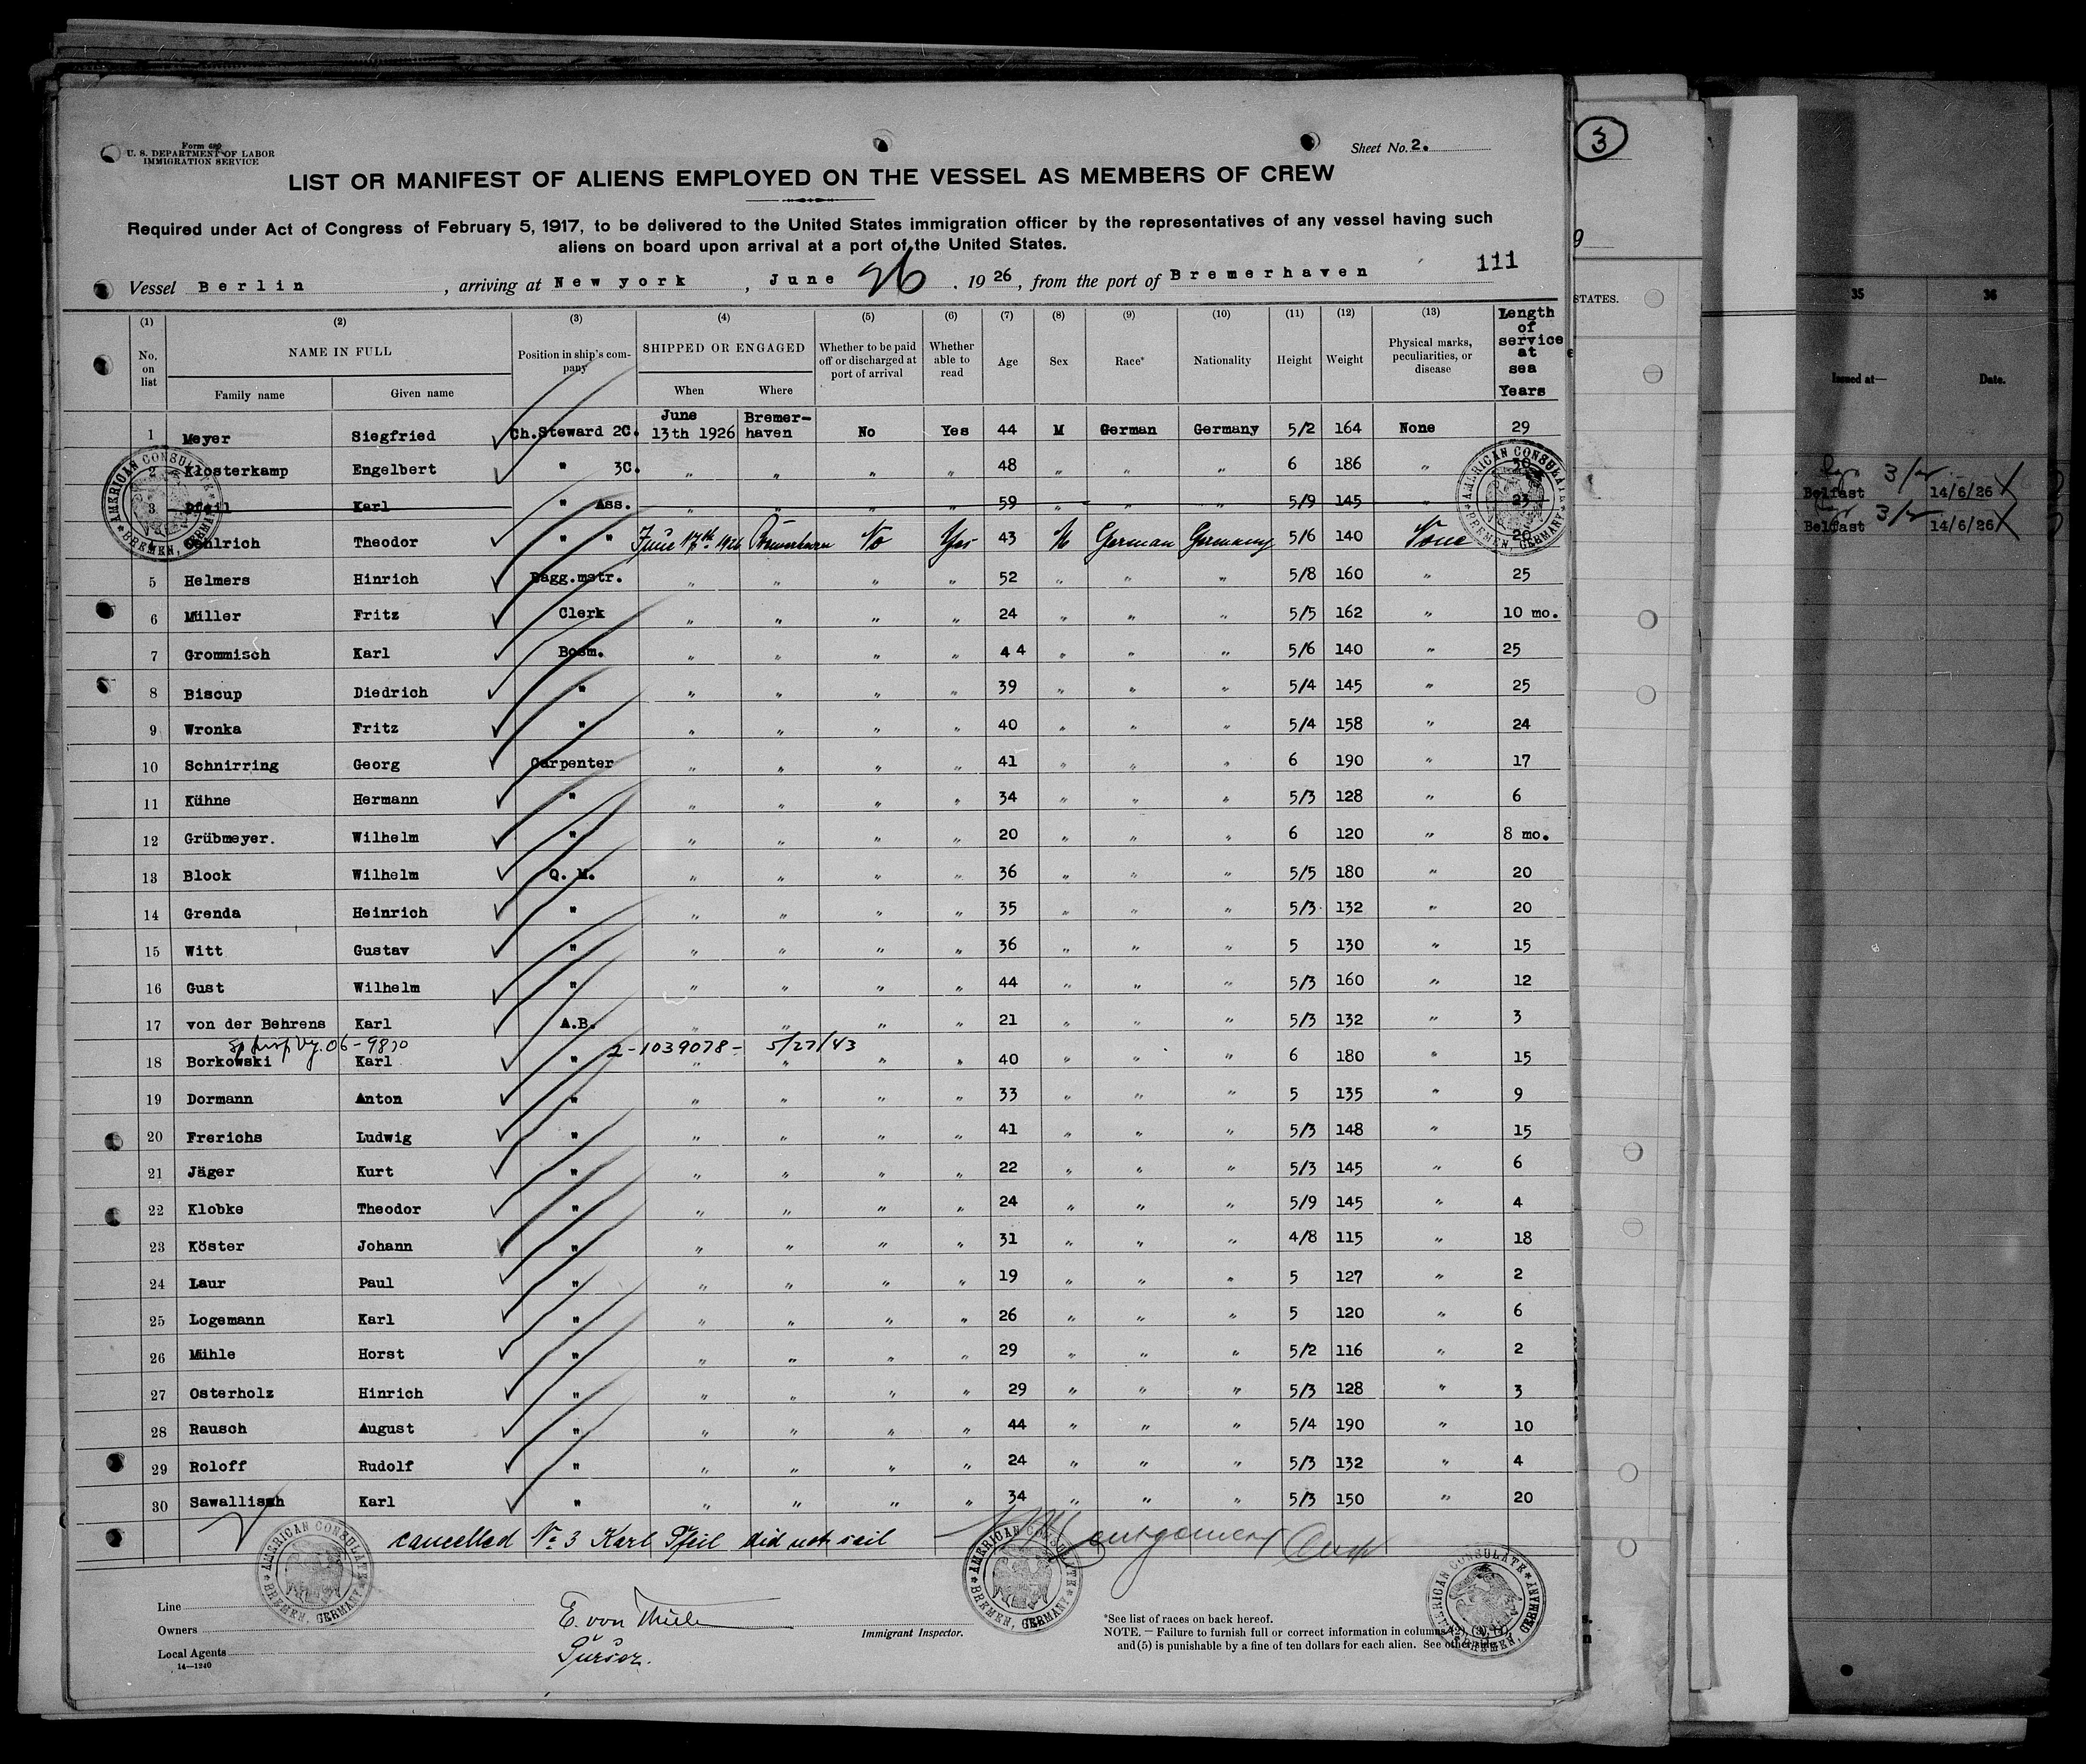 Form 680
U. S. DEPARTMENT OF LABOR
IMMIGRATION SERVICE
Sheet No. 2.
3
LIST OR MANIFEST OF ALIENS EMPLOYED ON THE VESSEL AS MEMBERS OF CREW
Required under Act of Congress of February 5, 1917, to be delivered to the United States immigration officer by the representatives of any vessel having such
aliens on board upon arrival at a port of the United States.
111
Vessel Berlin, arriving at New york, June 26. 1926, from the port of Bremerhaven
STATES.
35 36
Issued at— Date.
(1) (2) (3) (4) (5) (6) (7) (8) (9) (10) (11) (12) (13) Length of service at sea Years
No. on list NAME IN FULL Position in ship's company SHIPPED OR ENGAGED Whether to be paid off or discharged at port of arrival Whether able to read Age Sex Race* Nationality Height Weight Physical marks, peculiarities, or disease
Family name Given name When Where
1 Meyer Siegfried Ch.Steward 2C. June 13th 1926 Bremer-haven No Yes 44 M German Germany 5/2 164 None 29
2 Klosterkamp Engelbert " 3C. " " " " 48 " " " 6 186 " 30
3 Pfeil Karl " Ass. " " " " 59 " " " 5/9 145 " 23
Theodor " " June 17th 1926 Bremerhaven No Yes 43 M German Germany 5/6 140 None 20
5 Helmers Hinrich Bagg.mstr. " " " " 52 " " " 5/8 160 " 25
6 Müller Fritz Clerk " " " " 24 " " " 5/5 162 " 10 mo.
7 Grommisch Karl Bosm. " " " " 44 " " " 5/6 140 " 25
8 Biscup Diedrich " " " " " 39 " " " 5/4 145 " 25
9 Wronka Fritz " " " " " 40 " " " 5/4 158 " 24
10 Schnirring Georg Carpenter " " " " 41 " " " 6 190 " 17
11 Kühne Hermann " " " " " 34 " " " 5/3 128 " 6
12 Grübmeyer. Wilhelm " " " " " 20 " " " 6 120 " 8 mo.
13 Block Wilhelm Q. M. " " " " 36 " " " 5/5 180 " 20
14 Grenda Heinrich " " " " " 35 " " " 5/3 132 " 20
15 Witt Gustav " " " " " 36 " " " 5 130 " 15
16 Gust Wilhelm " " " " " 44 " " " 5/3 160 " 12
17 von der Behrens Karl A.B. " " " " 21 " " " 5/3 132 " 3
06-9870 2-1039078- 5/27/43
18 Borkowski Karl " " " " " 40 " " " 6 180 " 15
19 Dormann Anton " " " " " 33 " " " 5 135 " 9
20 Frerichs Ludwig " " " " " 41 " " " 5/3 148 " 15
21 Jäger Kurt " " " " " 22 " " " 5/3 145 " 6
22 Klobke Theodor " " " " " 24 " " " 5/9 145 " 4
23 Köster Johann " " " " " 31 " " " 4/8 115 " 18
24 Laur Paul " " " " " 19 " " " 5 127 " 2
25 Logemann Karl " " " " " 26 " " " 5 120 " 6
26 Mühle Horst " " " " " 29 " " " 5/2 116 " 2
27 Osterholz Hinrich " " " " " 29 " " " 5/3 128 " 3
28 Rausch August " " " " " 44 " " " 5/4 190 " 10
29 Roloff Rudolf " " " " " 24 " " " 5/3 132 " 4
30 Sawallisch Karl " " " " " 34 " " " 5/3 150 " 20
Belfast 14/6/26
Belfast 14/6/26
AMERICAN CONSULATE BREMEN, GERMANY
AMERICAN CONSULATE BREMEN, GERMANY
cancelled No 3 Karl Pfeil did not sail
AMERICAN CONSULATE BREMEN, GERMANY
AMERICAN CONSULATE BREMEN, GERMANY
AMERICAN CONSULATE BREMEN, GERMANY
Line
Owners
Local Agents
14—1240
E. von Thiele
Purser.
Immigrant Inspector.
*See list of races on back hereof.
NOTE.—Failure to furnish full or correct information in columns (2), (3), (4),
and (5) is punishable by a fine of ten dollars for each alien. See other side.